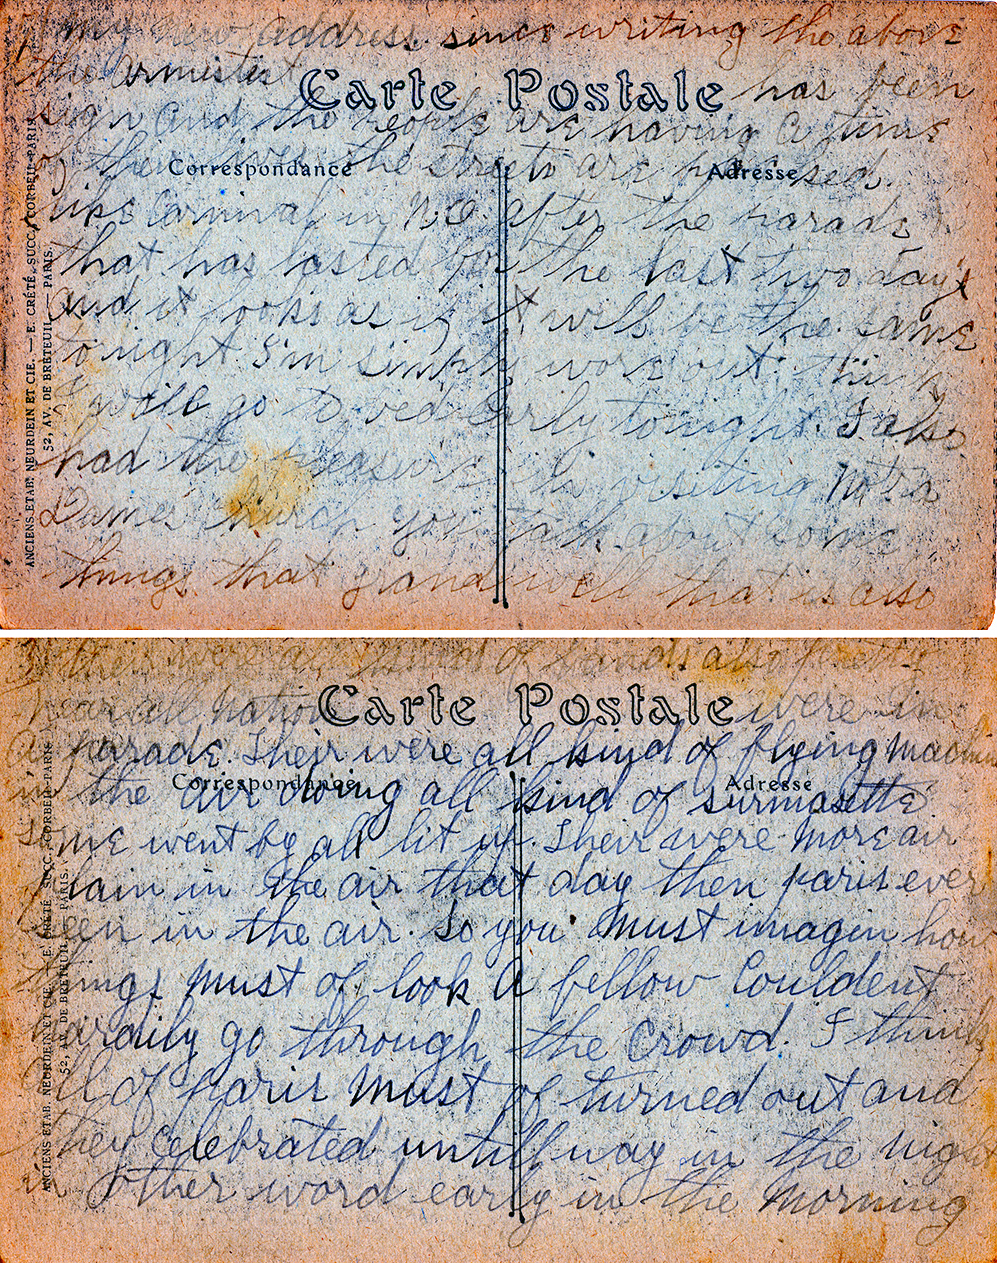 my new address. since writing the above
the armistist has been
Carte Postale
sign and the people are having a time
of their lives. the streets are
Correspondance
Adresse
like Carnival in N.O. after the parade
that has lasted for the last two day's
and it looks as if it will be the same
to night I'm simply wore out. think
I will go to bed early tonight. I also
had the pleasure in visiting Notra
Dames church you talk about some
things that grand well that is also
ANCIENS ETAB. NEURDEIN ET CIE. — E. CRÉTÉ, SUCC. CORBEIL-PARIS
52, AV. DE BRETEUIL — PARIS.
their were a of bands also
near all nation were in
Carte Postale
a parade. Their were all kind of flying machin
Correspondance
Adresse
in the air doing all kind of surmasette
some went by all lit up. Their were more air
plain in the air that day then paris ever
seen in the air. So you must imagin how
things must of look a fellow couldent
hardily go through the crowd. I think
all of paris must of turned out and
they celebrated untill way in the night
in other word early in the morning
ANCIENS ETAB. NEURDEIN ET CIE. — E. CRÉTÉ SUCC. CORBEIL-PARIS
52, AV. DE BRETEUIL — PARIS.